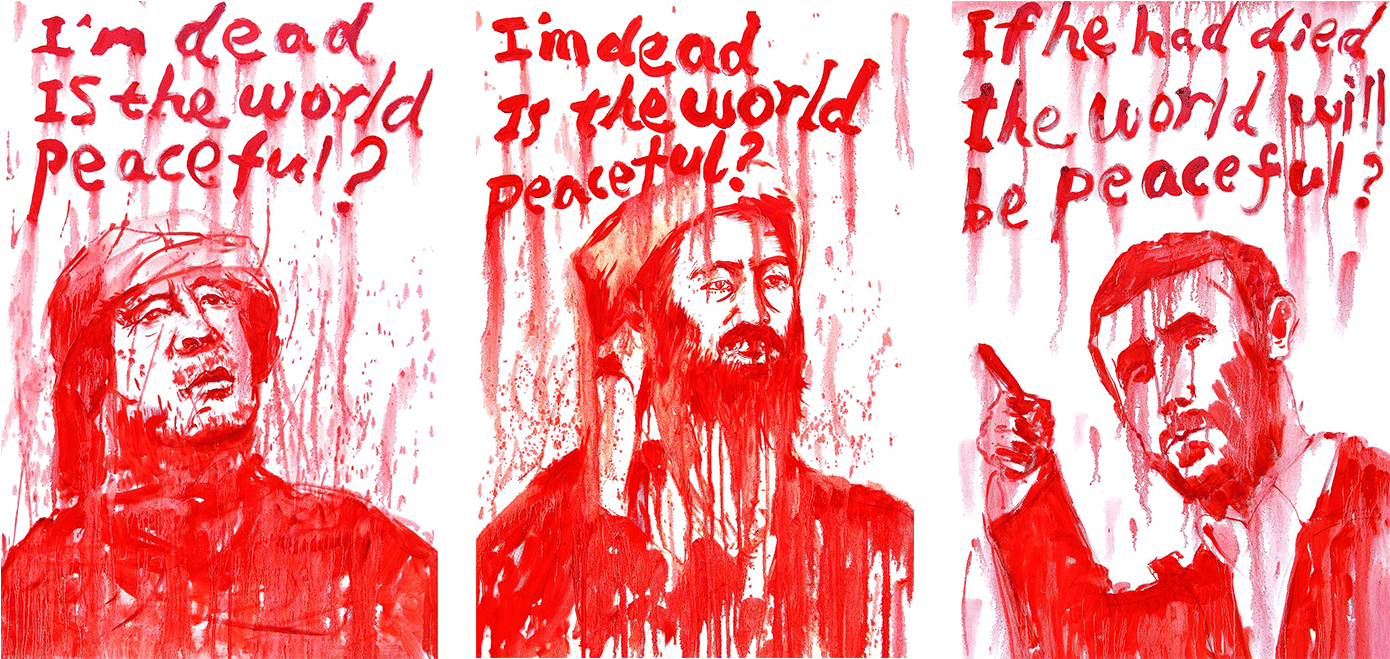 I'm dead
IS the world
peaceful?
I'm dead
Is the world
peaceful?
If he had died
the world will
be peaceful?